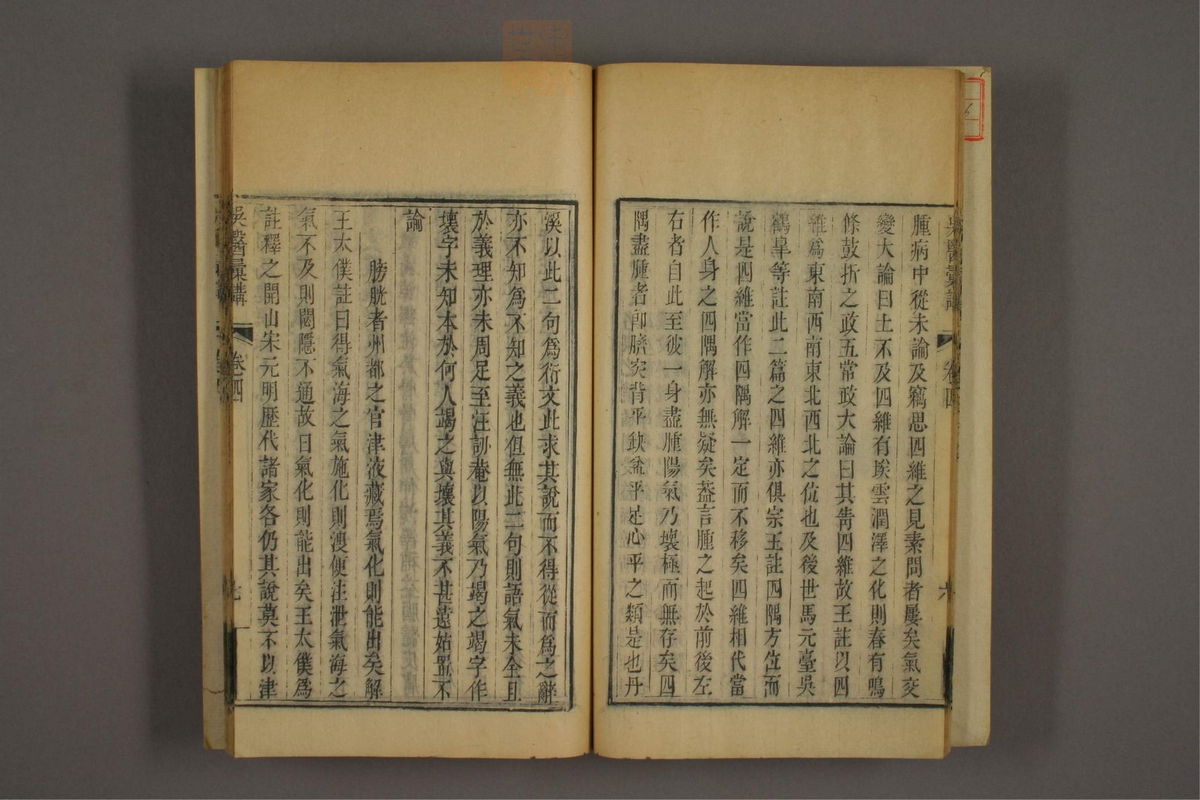 吳醫彙講 卷四 六
腫病中從未論及竊思四維之見素問者屢矣氣交
變大論曰土不及四維有埃雲潤澤之化則春有鳴
條鼓折之政五常政大論曰其眚四維故王註以四
維爲東南西南東北西北之位也及後世馬元臺吳
鶴皐等註此二篇之四維亦俱宗王註四隅方位而
說是四維當作四隅解一定而不移矣四維相代當
作人身之四隅解亦無疑矣葢言腫之起於前後左
右者自此至彼一身盡腫陽氣乃壞極而無存矣四
隅盡腫者卽臍突背平缺盆平足心平之類是也丹
溪以此二句爲衍文此求其說而不得從而爲之辭
亦不知爲不知之義也但無此二句則語氣未全且
於義理亦未周足至汪訒菴以陽氣乃竭之竭字作
壞字未知本於何人竭之與壞其義不甚遠姑置不
論
膀胱者州都之官津液藏焉氣化則能出矣解
王太僕註曰得氣海之氣施化則溲便注泄氣海之
氣不及則閟隱不通故曰氣化則能出矣王太僕爲
註釋之開山宋元明歷代諸家各仍其說莫不以津
吳醫彙講 卷四 七